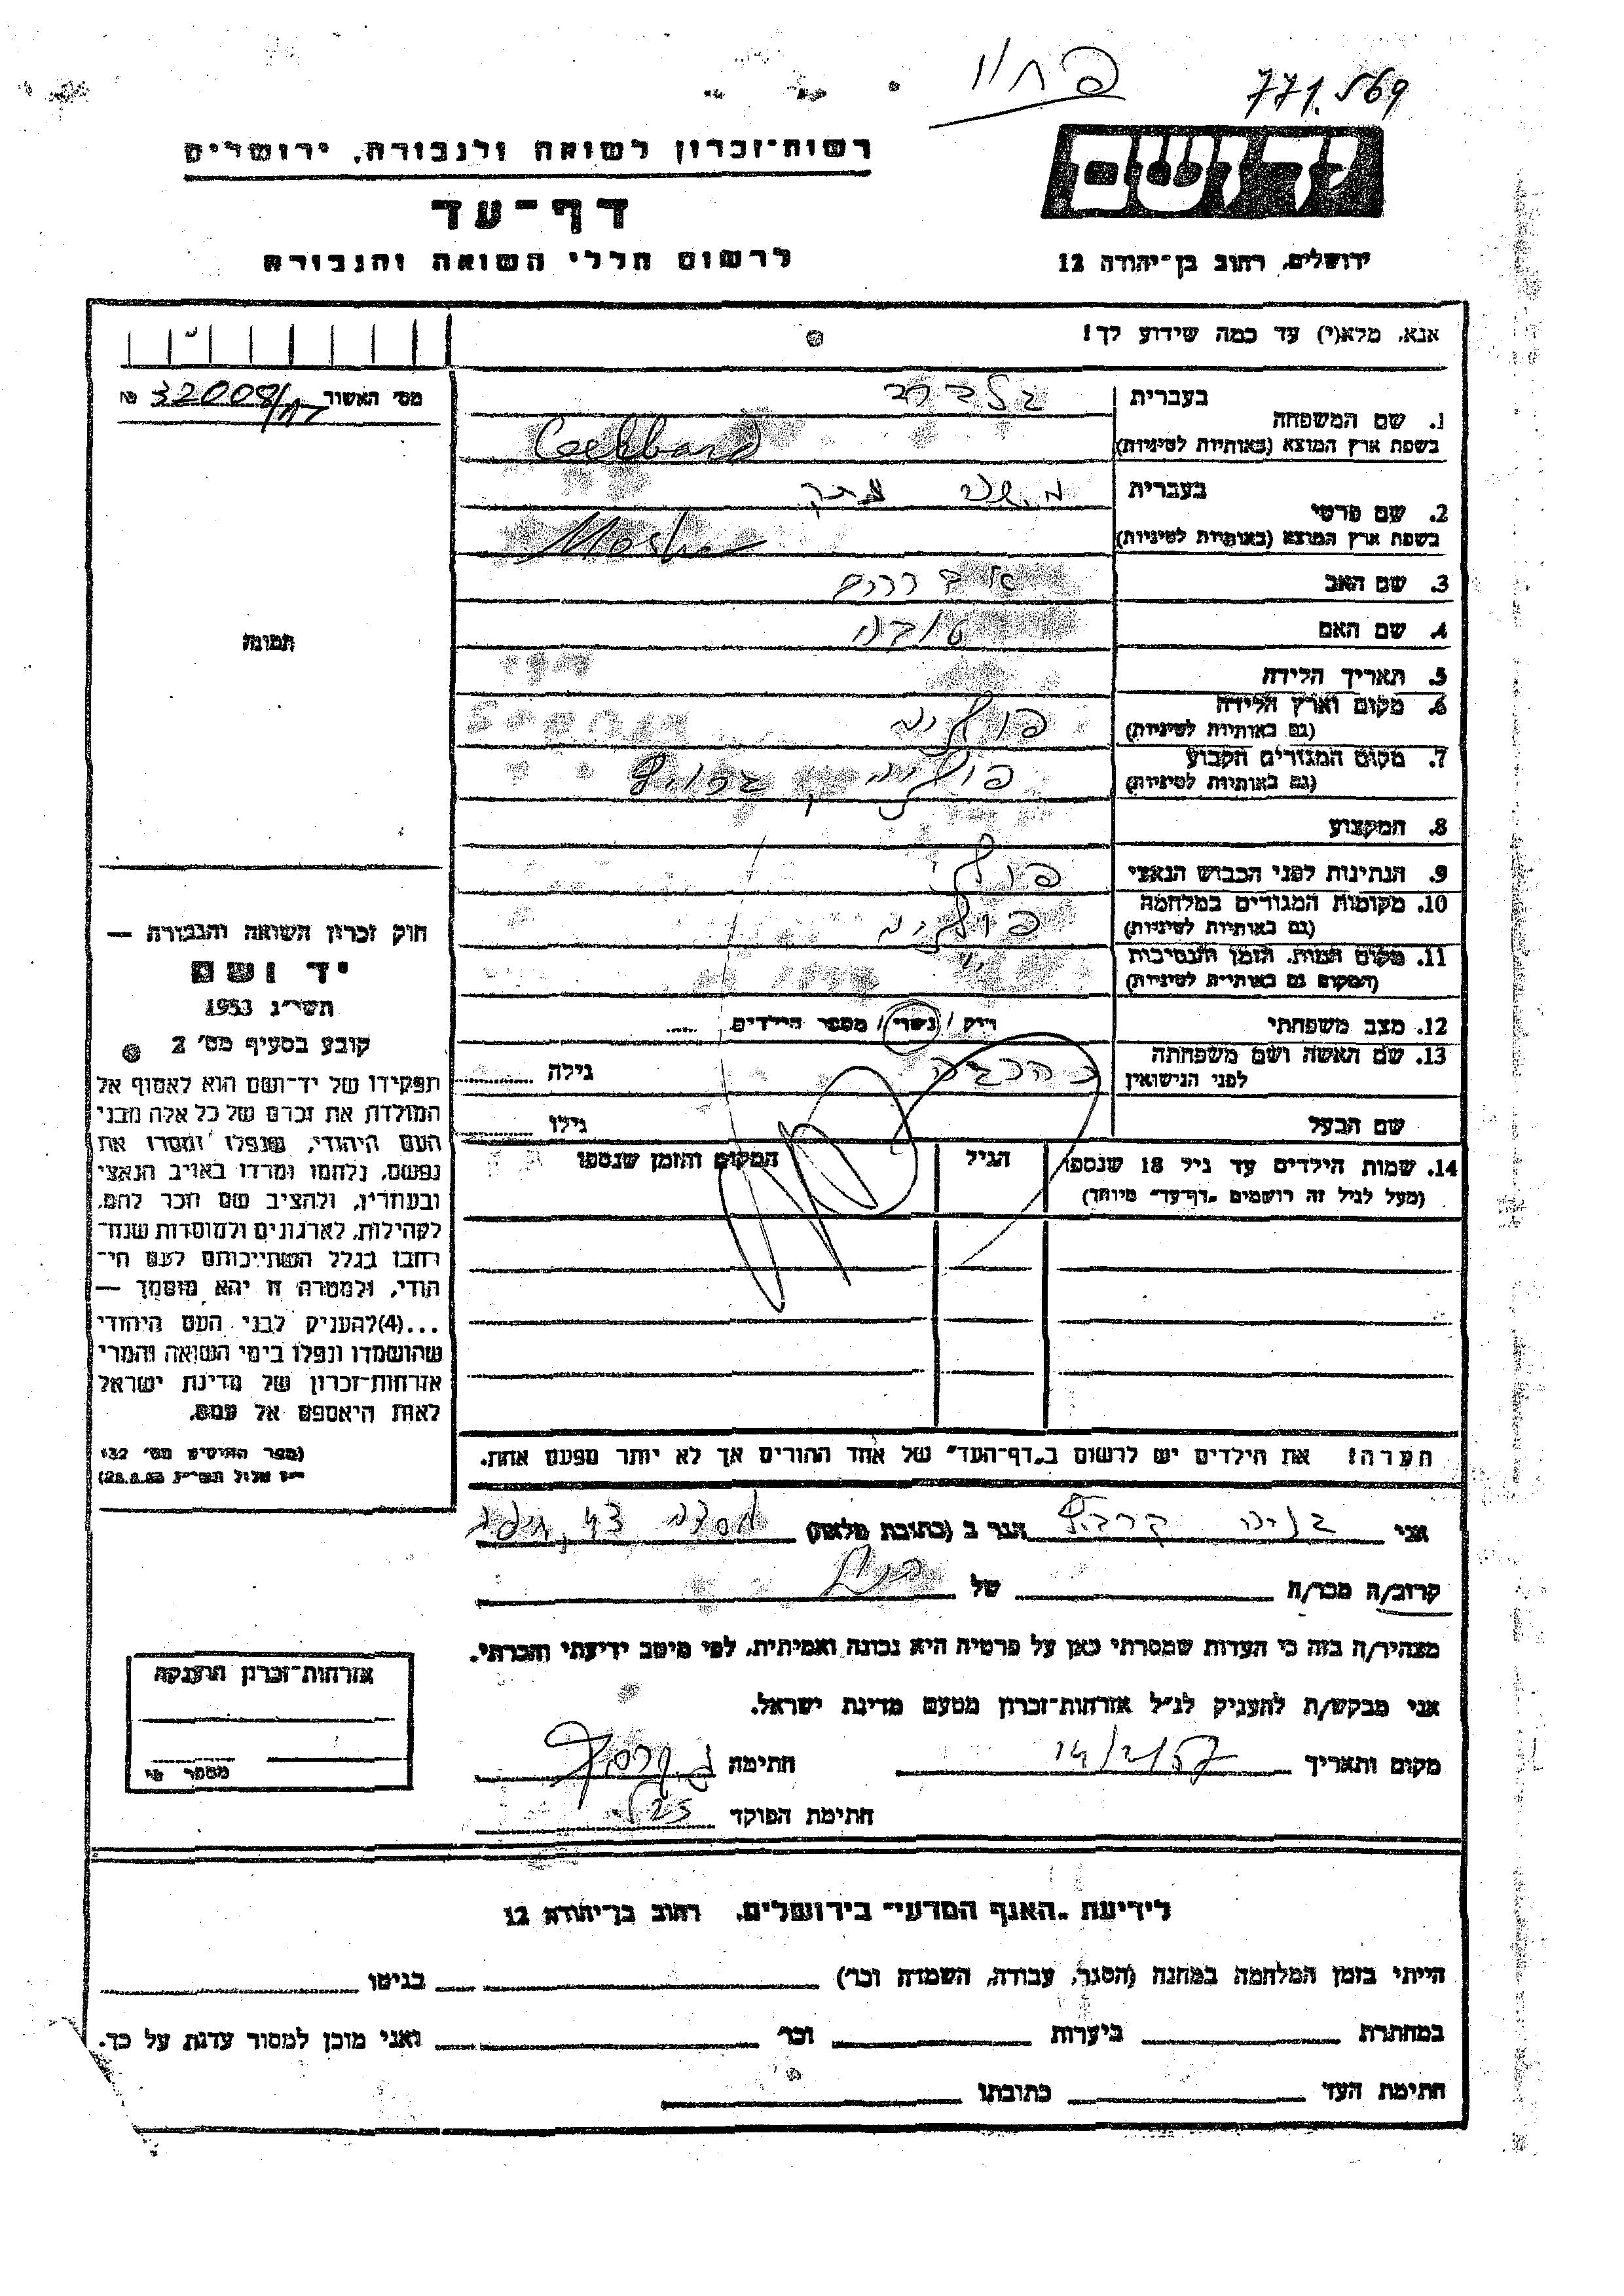 771.569
רשות־זכרון לשואה ולגבורה, ירושלים
דף־עד
לרשום חללי השואה והגבורה
יד ושם
ירושלים, רחוב בן־יהודה 12
אנא, מלא(י) עד כמה שידוע לך!
מס׳ האשור 32008/
1. שם המשפחה
בעברית גלברד
בשפת ארץ המוצא (באותיות לטיניות)
2. שם פרטי
בעברית משה
בשפת ארץ המוצא (באותיות לטיניות) Moshe
3. שם האב אברהם
4. שם האם טובה
5. תאריך הלידה
6. מקום וארץ הלידה
(גם באותיות לטיניות) פולניה
7. מקום המגורים הקבוע
(גם באותיות לטיניות) פולניה
8. המקצוע
9. הנתינות לפני הכבוש הנאצי פולני
10. מקומות המגורים במלחמה
(גם באותיות לטיניות) פולניה
11. מקום המות, הזמן והנסיבות
(המקום גם באותיות לטיניות)
12. מצב משפחתי רווק / נשוי / מספר הילדים
13. שם האשה ושם משפחתה
לפני הנישואין
גילה
שם הבעל גילו
14. שמות הילדים עד גיל 18 שנספו
(מעל לגיל זה רושמים „דף־עד״ מיוחד)
הגיל
המקום והזמן שנספו
הערה! את הילדים יש לרשום ב„דף־העד״ של אחד ההורים אך לא יותר מפעם אחת.
תמונה
חוק זכרון השואה והגבורה —
יד ושם
תשי״ג 1953
קובע בסעיף מס׳ 2
תפקידו של יד־ושם הוא לאסוף אל
המולדת את זכרם של כל אלה מבני
העם היהודי, שנפלו ומסרו את
נפשם, נלחמו ומרדו באויב הנאצי
ובעוזריו, ולהציב שם וזכר להם,
לקהילות, לארגונים ולמוסדות שנח־
רבו בגלל השתייכותם לעם הי־
הודי, ולמטרה זו יהא מוסמך —
...(4) להעניק לבני העם היהודי
שהושמדו ונפלו בימי השואה והמרי
אזרחות־זכרון של מדינת ישראל
לאות היאספם אל עמם.
(ספר החוקים מס׳ 132
י״ז אלול תשי״ג 28.8.53)
אני הגר ב (כתובת מלאה)
קרוב/ה מכר/ה של
מצהיר/ה בזה כי העדות שמסרתי כאן על פרטיה היא נכונה ואמיתית, לפי מיטב ידיעתי והכרתי.
אני מבקש/ת להעניק לנ״ל אזרחות־זכרון מטעם מדינת ישראל.
מקום ותאריך 14/2/57 חתימה
חתימת הפוקד
אזרחות־זכרון הוענקה
מספר
לידיעת „האגף המדעי״ בירושלים, רחוב בן־יהודה 12
הייתי בזמן המלחמה במחנה (הסגר, עבודה, השמדה וכו׳) בגיטו
במחתרת ביערות וכו׳ ואני מוכן למסור עדות על כך.
חתימת העד כתובתו